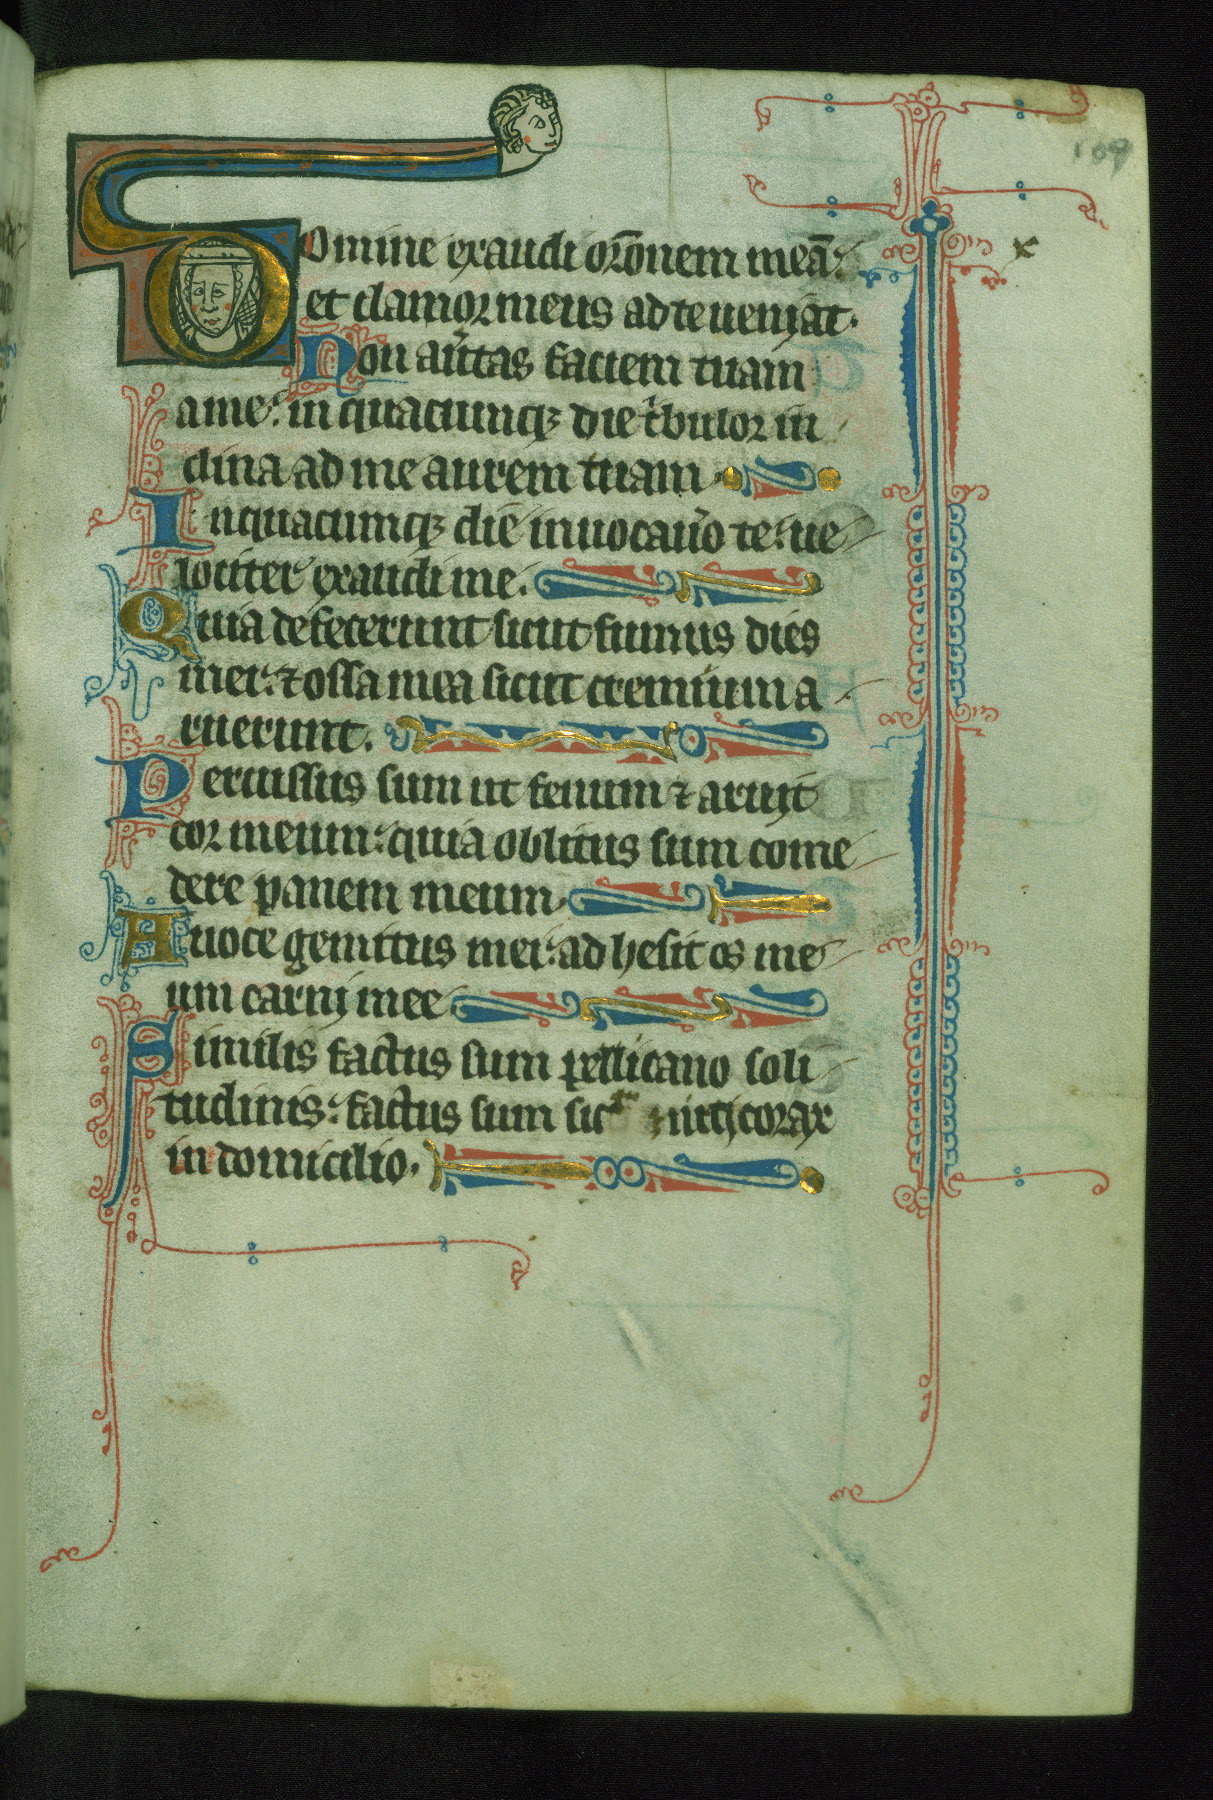 109
Domine exaudi or̄onem meā:
et clamor meus ad te ueniat.
Non au͛tas faciem tuam
a me: in quacumq; die t͛bulor in
clina ad me aurem tuam.
In quacumq; die inuocau͛o te: ue
lociter exaudi me.
Quia defecerunt sicut fumus dies
mei: ⁊ ossa mea sicut cremium a
ruerunt.
Percussus sum ut fenum ⁊ aruit
cor meum: quia oblitus sum come
dere panem meum.
A uoce gemitus mei: adhesit os me
um carni mee.
Similis factus sum pellicano soli
tudinis: factus sum sic nicticorax
in domicilio.